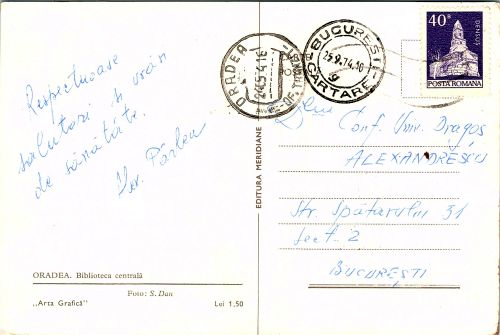 Respectuoase
salutări și urări
de sănătate.
Pârlea
ORADEA. Biblioteca centrală
Foto: S. Dan
„Arta Grafică" Lei 1,50
EDITURA MERIDIANE
ORADEA
BUCUREȘTI
25.9.74.10
CARTARE
40 B
DENSUȘ
POSTA ROMANA
Conf. Univ. Dragoș
ALEXANDRESCU
Str. Spătarului 31
Sect. 2
BUCUREȘTI